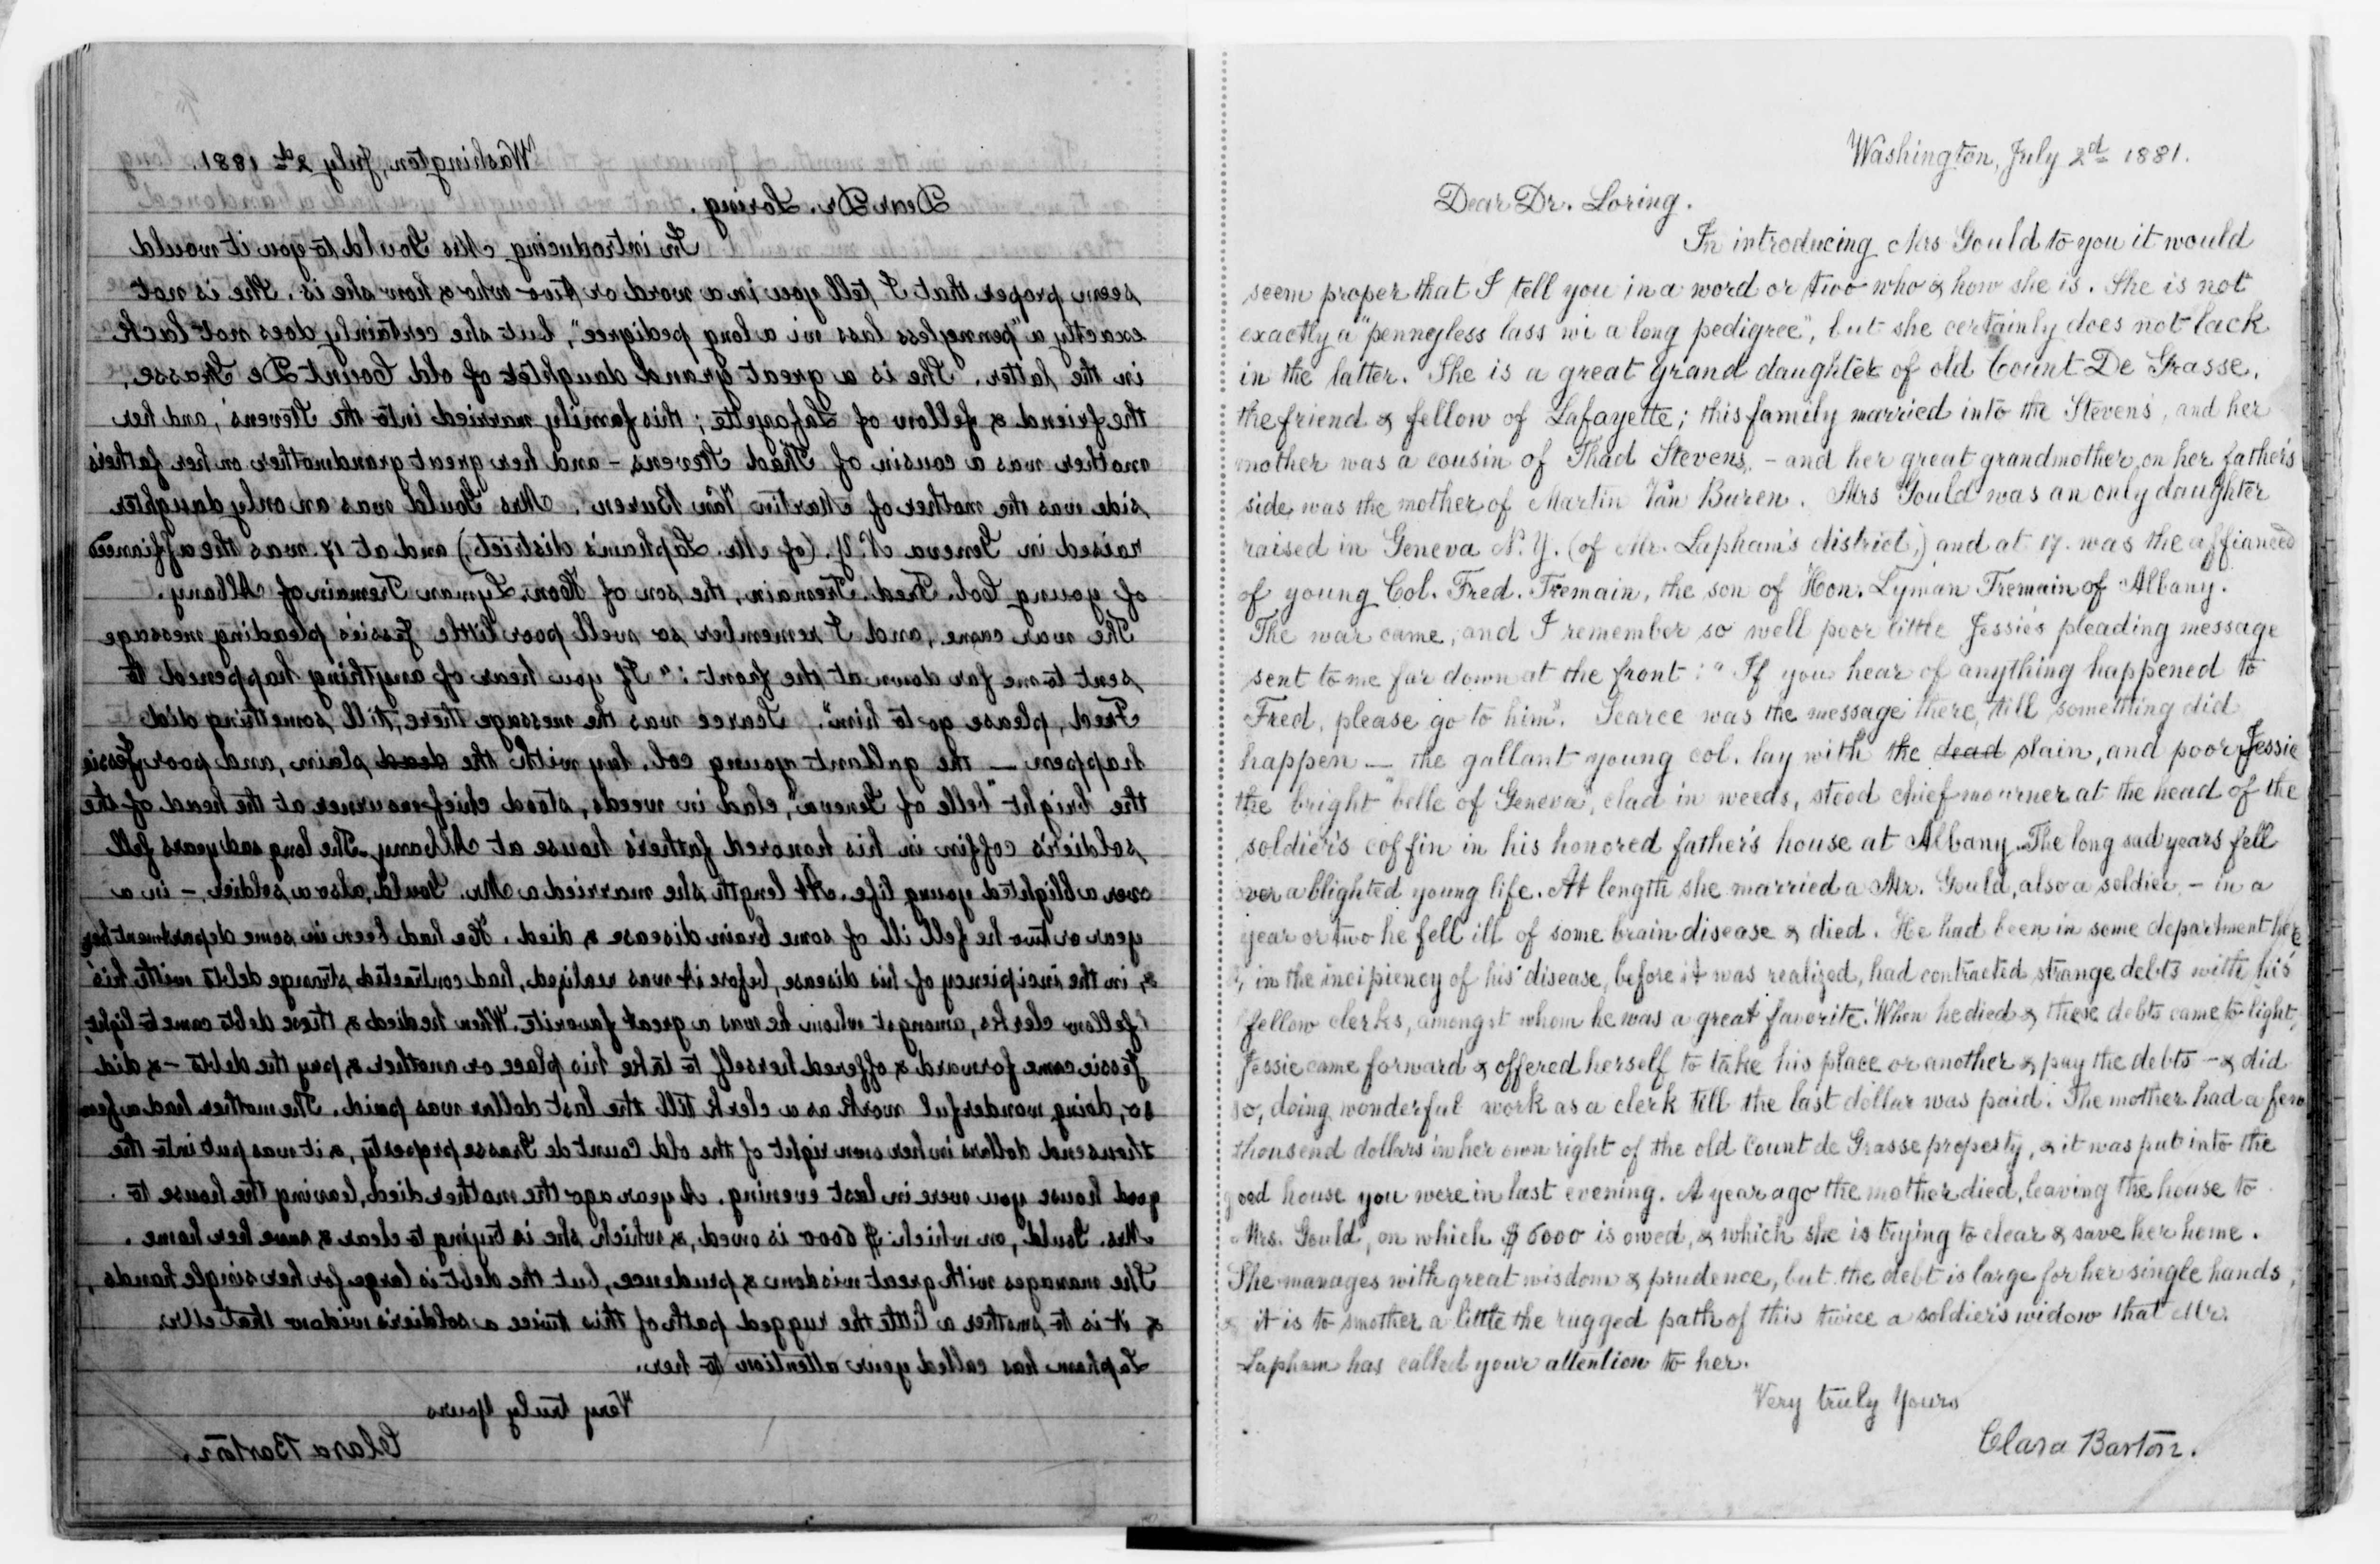 Washington, July 2d 1881.
Dear Dr. Loring.
In introducing Mrs Gould to you it would
seem proper that I tell you in a word or two who & how she is. She is not
exactly a "penneyless lass wi a long pedigree", but she certainly does not lack
in the latter. She is a great grand daughter of old Count De Grasse,
the friend & fellow of Lafayette; this family married into the Stevens', and her
mother was a cousin of Thad Stevens, - and her great grandmother on her father's
side was the mother of Martin Van Buren. Mrs Gould was an only daughter
raised in Geneva N.Y. (of Mr. Lapham's district,) and at 17. was the affianced
of young Col. Fred. Tremain, the son of Hon. Lyman Tremain of Albany.
The war came, and I remember so well poor little Jessie's pleading message
sent to me far down at the front: "If you hear of anything happened to
Fred, please go to him". Scarce was the message there, till something did
happen — the gallant young col. lay with the dead slain, and poor Jessie
the bright "belle of Geneva", clad in weeds, stood chief mourner at the head of the
soldier's coffin in his honored father's house at Albany. The long sad years fell
over a blighted young life. At length she married a Mr. Gould, also a soldier, - in a
year or two he fell ill of some brain disease & died. He had been in some department here
&, in the incipiency of his disease, before it was realized, had contracted strange debts with his
fellow clerks, amongst whom he was a great favorite. When he died & these debts came to light,
Jessie came forward & offered herself to take his place or another & pay the debts - & did
so, doing wonderful work as a clerk till the last dollar was paid. The mother had a few
thousend dollars in her own right of the old Count de Grasse property, & it was put into the
good house you were in last evening. A year ago the mother died, leaving the house to
Mrs. Gould, on which $ 6000 is owed, & which she is trying to clear & save her home.
She manages with great wisdom & prudence, but the debt is large for her single hands,
& it is to smother a little the rugged path of this twice a soldier's widow that Mr.
Lapham has called your attention to her.
Very truly Yours
Clara Barton.